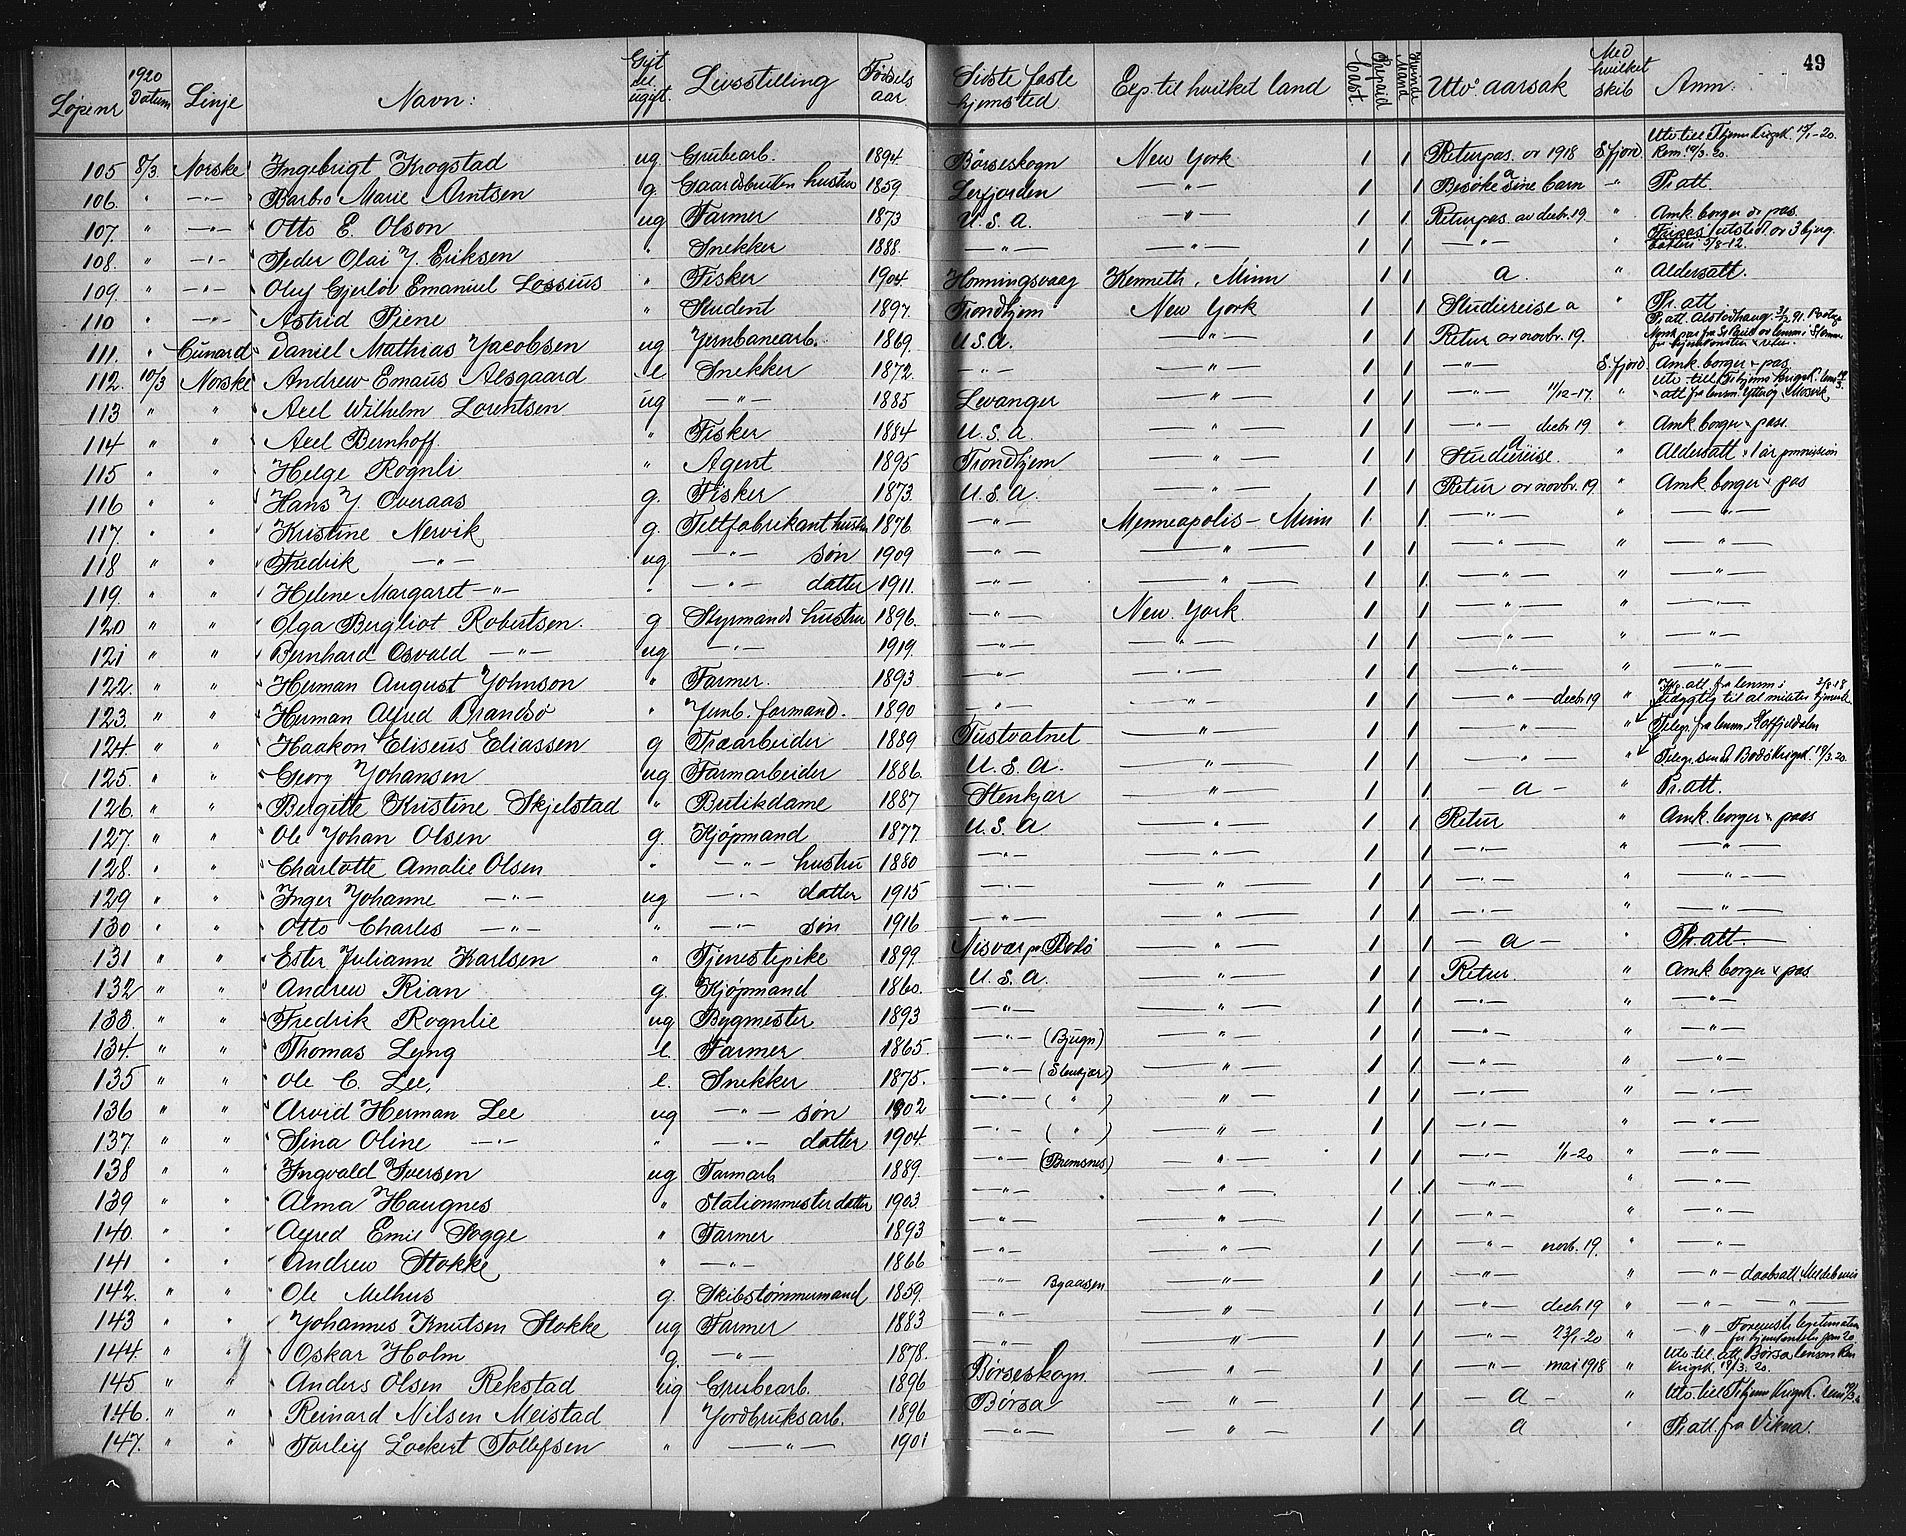 49
Løpenr 1920 Datum Linje Navn: Gift el. ugift. Livsstilling Fødsels aar Sidste faste hjemsted Exp. til hvilket land Contt. Prepaid Mand Kvinde Utv aarsak Med hvilket skib Anm.
105 8/3 Norske Ingebrigt Krogstad ug Grubearb. 1894 Børseskogn New York 1 1 Returpas. av 1918 S. fjord Utv. till Thjems Krigsk. 15/1-20. Rem. 19/3. 20.
106. " —"— Barbro Marie Arntsen g. Gaardbruker hustru 1859. Lerfjorden —"— 1 1 Besøke sine barn a —"— Pr. att.
107. " —"— Otto E. Olson ug Farmer 1873 U.S.a. —"— 1 1 Returpas. av decbr. 19 " Amk. borger & pas.
108. " —"— Peder Olai J. Eriksen " Snekker 1888. —"— —"— 1 1 —"— "
109. " —"— Oluf Gjerløv Emanuel Lossius " Fisker 1904 Honningsvaag Kenneth, Minn 1 1 a. " Aldersatt.
110 " —"— Astrid Piene " Student 1897. Trondhjem New York 1 1 Studiereise a " Pr. att
111. " Cunard Daniel Mathias Jacobsen ug Jernbanearb. 1869. U.S.a. —"— 1 1 Retur av novbr. 19.
112 10/3 Norske Andrew Emaus Aesgaard e Snekker 1872. —"— —"— 1 1 —"— S. fjord Amk. borger & pas
113 " " Axel Wilhelm Lorentsen ug —"— 1885 Levanger —"— 1 1 —"— 11/12-17. "
114 " " Axel Bernhoff. " Fisker 1884 U.S.a. —"— 1 1 —"— decbr 19 " Amk borger & pass.
115 " " Helge Rognli " Agent 1895 Trondhjem —"— 1 1 Studiereise. a " Aldersatt & 1 år permission
116 " " Hans J. Overaas g. Fisker 1873. U.S.a. —"— 1 1 Retur av novbr. 19 " Amk borger & pas
117 " " Kristine Nervik g. Teltfabrikant hustru 1876. —"— Menneapolis – Minn 1 1 —"— " —"—
118 " " Fredrik —"— ug —"— søn 1909 —"— —"— 1 1 —"— " —"—
119. " " Helene Margaret —"— " —"— datter 1911. —"— —"— 1 1 —"— " —"—
120 " " Olga Bergliot Robertsen. g Styrmands hustru 1896. —"— New York. 1 1 —"— " —"—
121 " " Bernhard Osvald —"— ug —"— 1919. —"— —"— 1 1 —"— " —"—
122. " " Herman August Johnson " Farmer. 1893 —"— —"— 1 1 —"— " —"—
123. " " Herman Alfred Brandsø " Jernb. formand. 1890 —"— —"— 1 1 —"— decbr 19 "
124 " " Haakon Eliseus Eliassen g Træarbeider 1889 Fustvatnet —"— 1 1 —"— " Telegr. fra lensm. i Hatfjeldalen
125. " " Georg Johansen ug Farmarbeider 1886. U.S.a. —"— 1 1 —"— " Telegr. sendt Bodø Krigsk. 19/3. 20.
126. " " Bergitte Kristine Skjelstad " Butikdame 1887 Stenkjær —"— 1 1 – a – " Pr. att.
127. " " Ole Johan Olsen g. Kjøpmand 1877. U.S.a —"— 1 1 Retur " Amk. borger & pass
128. " " Charlotte Amalie Olsen " —"— hustru 1880 —"— —"— 1 1 —"— " —"—
129 " " Inger Johanne —"— ug —"— datter 1915 —"— —"— 1 1 —"— " —"—
130 " " Otto Charles —"— " —"— søn 1916. —"— —"— 1 1 —"— " —"—
131 " " Ester Julianne Karlsen " Tjenestepike 1899. Misvær pr Bodø —"— 1 1 – a – " Pr. att.
132 " " Andrew Rian g. Kjøpmand 1860. U.S.a. —"— 1 1 Retur. " Amk borger & pas
133. " " Fredrik Rognlie ug Bygmester 1893 —"— —"— 1 1 —"— " —"—
134. " " Thomas Lyng e. Farmer 1865. —"— (Bjugn) —"— 1 1 —"— " —"—
135 " " Ole C. Lee, e. Snekker 1875. —"— (Stenkjær) —"— 1 1 —"— " —"—
136 " " Arvid Herman Lee ug —"— søn 1902 —"— ( " ) —"— 1 1 —"— " —"—
137. " " Sina Oline —"— " —"— datter 1904. —"— ( " ) —"— 1 1 —"— " —"—
138 " " Ingvald Iversen ug Farmarb 1889. —"— (Bremsnes) —"— 1 1 —"— 1/1-20 " —"—
139 " " Alma Haugnes " Stationmester datter 1903. —"— —"— 1 1 —"— " —"—
140. " " Alfred Emil Sogge " Farmer 1893 —"— —"— 1 1 —"— " —"—
141 " " Andrew Stokke " —"— 1866 —"— —"— 1 1 —"— novb. 19. " —"—
142. " " Ole Melhus g. Skibstømmermand 1859. —"— Byaasen —"— 1 1 —"— " —"— daabsatt. Meldebevis
143 " " Johannes Knutsen Stokke ug Farmer 1883 —"— —"— 1 1 —"— decbr 19 " —"—
144. " " Oskar Holm g. —"— 1878. —"— —"— 1 1 —"— 23/1-20 "
145 " " Anders Olsen Rekstad ug Grubearb. 1896 Børseskogn " 1 1 —"— mai 1918 " Utv. til. att. Børsa lensm Rem Krigsk. 19/3. 20.
146. " " Reinard Nilsen Meistad " Jordbruksarb. 1896 Børsa —"— 1 1 – a – " Utv. till Thjems Krigsk.
147. " " Torleif Lockert Tollefsen " —"— 1901 —"— —"— 1 1 a " Pr. att. fra Vikna.